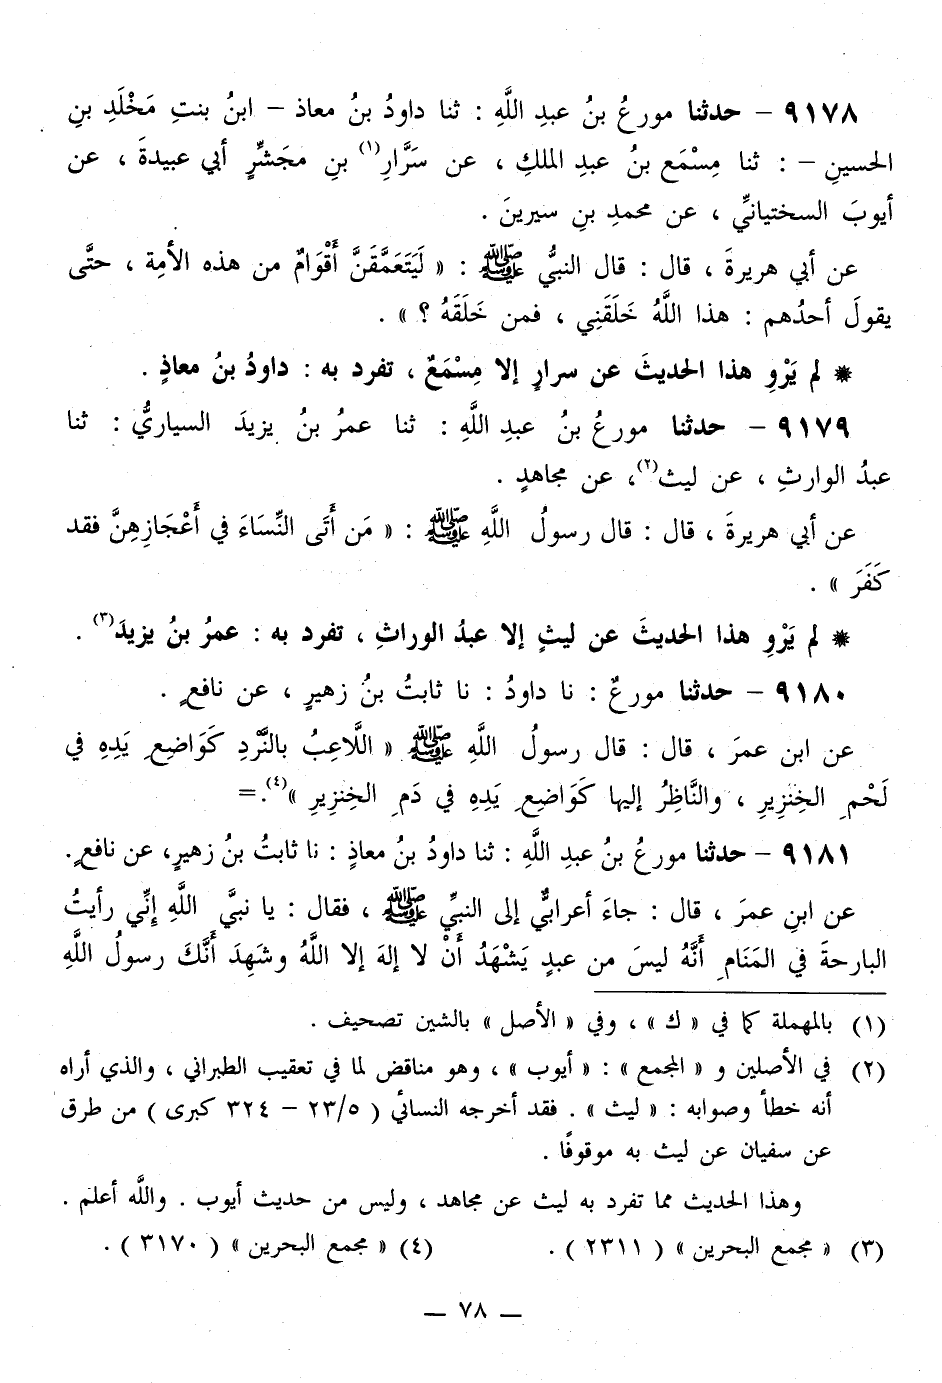 ٩١٧٨ – حدثنا مورعُ بنُ عبدِ اللَّهِ : ثنا داودُ بنُ معاذ – ابنُ بنتِ مَخْلَدِ بنِ
الحسينِ – : ثنا مِسْمَع بنُ عبدِ الملكِ ، عن سَرَّارِ(١) بنِ مجَشرٍّ أبي عبيدةَ ، عن
أيوبَ السختيانيِّ ، عن محمدِ بنِ سيرينَ .
عن أبي هريرةَ ، قال : قال النبيُّ ﷺ : « لَيَتَعَمَّقَنَّ أَقْوَامٌ من هذه الأمةِ ، حتَّى
يقولَ أحدُهم : هذا اللَّهُ خَلَقَنِي ، فمن خَلَقَهُ ؟ » .
* لم يَرْوِ هذا الحديثَ عن سرارٍ إلا مِسْمَعٌ ، تفرد به : داودُ بنُ معاذٍ .
٩١٧٩ – حدثنا مورعُ بنُ عبدِ اللَّهِ : ثنا عمرُ بنُ يزيدَ السياريُّ : ثنا
عبدُ الوارثِ ، عن ليث(٢)، عن مجاهدٍ .
عن أبي هريرةَ ، قال : قال رسولُ اللَّهِ ﷺ : « مَن أَتَى النِّسَاءَ في أَعْجَازِهِنَّ فقد
كَفَرَ » .
* لم يَرْوِ هذا الحديثَ عن ليثٍ إلا عبدُ الوراثِ ، تفرد به : عمرُ بنُ يزيدَ(٣) .
٩١٨٠ – حدثنا مورعٌ : نا داودُ : نا ثابتُ بنُ زهيرٍ ، عن نافعٍ .
عن ابن عمرَ ، قال : قال رسولُ اللَّهِ ﷺ « اللَّاعِبُ بالنَّرْدِ كَوَاضِعِ يَدِهِ في
لَحْمِ الخِنزِيرِ ، والنَّاظِرُ إليها كَوَاضِعِ يَدِهِ في دَمِ الخِنزِيرِ »(٤).=
٩١٨١ – حدثنا مورعُ بن عبدِ اللَّهِ : ثنا داودُ بنُ معاذٍ : نا ثابتُ بنُ زهيرٍ، عن نافعٍ.
عن ابنِ عمرَ ، قال : جاءَ أعرابيٌّ إلى النبيِّ ﷺ ، فقال : يا نبيَّ اللَّهِ إنِّي رأيتُ
البارحةَ في المَنَامِ أَنَّهُ ليسَ من عبدٍ يَشْهَدُ أَنْ لا إلهَ إلا اللَّهُ وشَهِدَ أَنَّكَ رسولُ اللَّهِ
(١) بالمهملة كما في « ك » ، وفي « الأصل » بالشين تصحيف .
(٢) في الأصلين و « المجمع » : « أيوب » ، وهو مناقض لما في تعقيب الطبراني ، والذي أراه
أنه خطأ وصوابه : « ليث » . فقد أخرجه النسائي ( ٢٣/٥ – ٣٢٤ كبرى ) من طرق
عن سفيان عن ليث به موقوفًا .
وهذا الحديث مما تفرد به ليث عن مجاهد ، وليس من حديث أيوب . والله أعلم .
(٣) « مجمع البحرين » ( ٢٣١١ ) . (٤) « مجمع البحرين » ( ٣١٧٠ ) .
— ٧٨ —